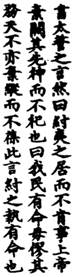 書太誓之言然曰紂夷之居而不肯事上帝
棄闕其先神而不祀也曰我民有命毋僇其
務天不亦棄縱而不葆此言紂之執有命也